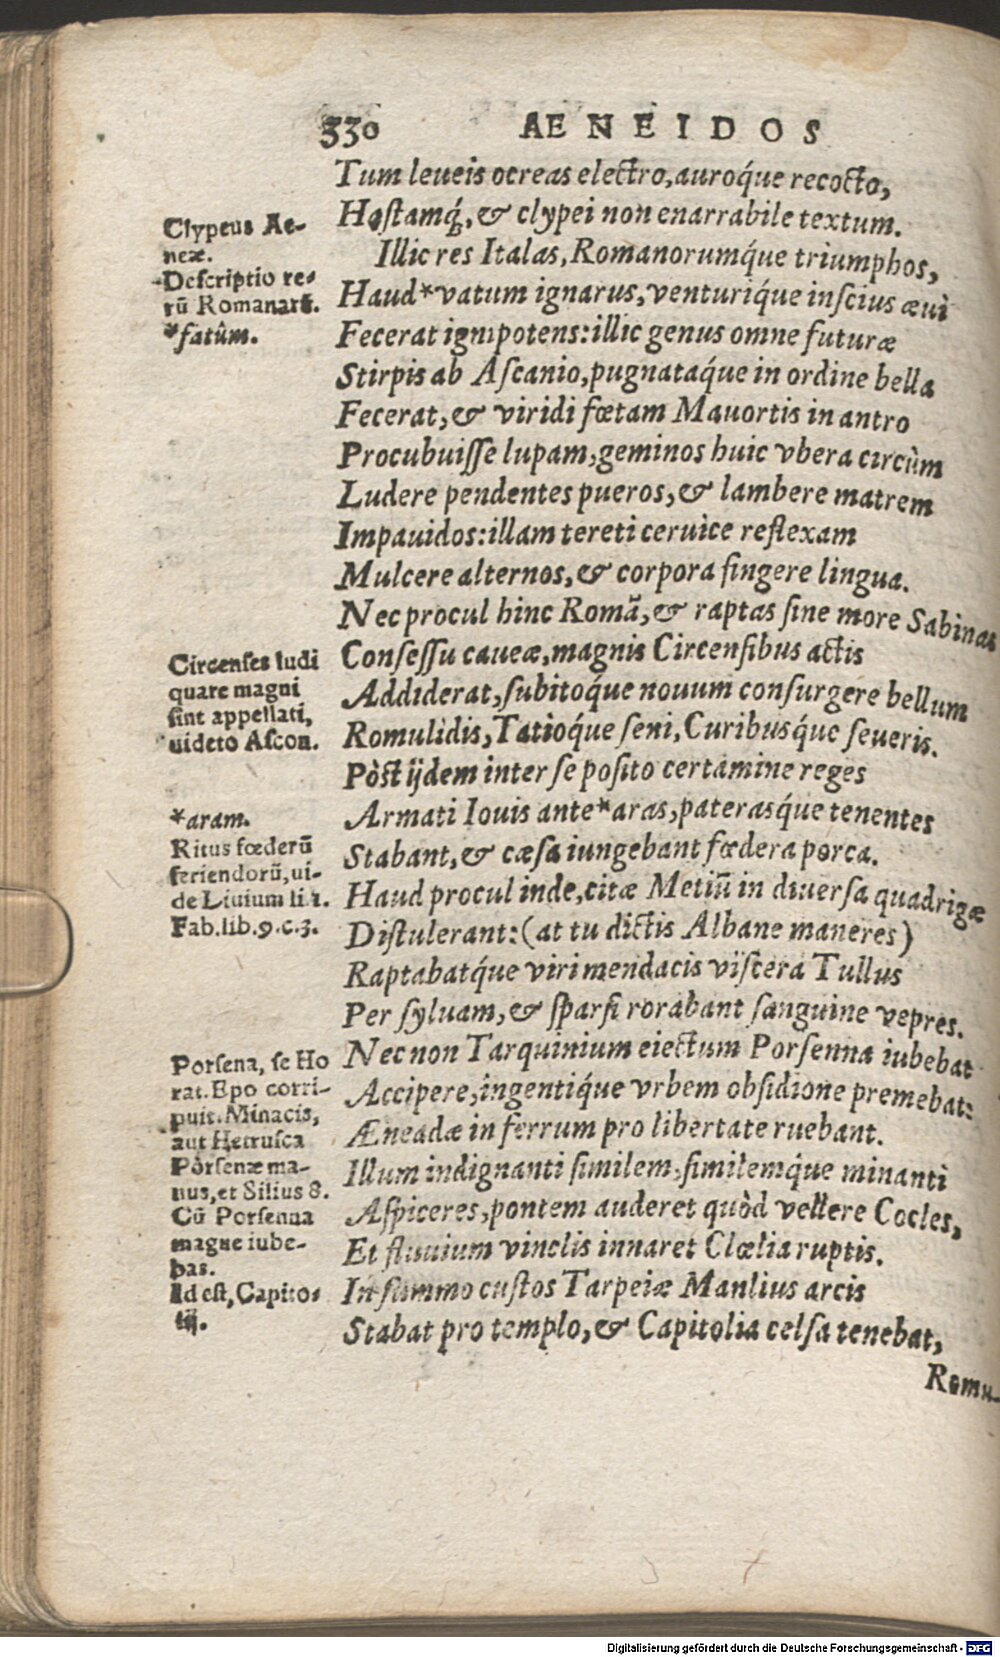 330 AENEIDOS
Tum leueis ocreas electro, auroq́ue recocto,
Hastamq́;, & clypei non enarrabile textum.
Clypeus Ae-
neæ.
Descriptio re-
rũ Romanarũ.
*fatûm.
Illic res Italas, Romanorumq́ue triumphos,
Haud*vatum ignarus, venturiq́ue inscius æui
Fecerat ignipotens: illic genus omne futuræ
Stirpis ab Ascanio, pugnataq́ue in ordine bella
Fecerat, & viridi fœtam Mauortis in antro
Procubuisse lupam, geminos huic vbera circùm
Ludere pendentes pueros, & lambere matrem
Impauidos: illam tereti ceruice reflexam
Mulcere alternos, & corpora fingere lingua.
Nec procul hinc Romã, & raptas sine more Sabinas
Circenses ludi
quare magni
sint appellati,
uideto Ascon.
Consessu caueæ, magnis Circensibus actis
Addiderat, subitoq́ue nouum consurgere bellum
Romulidis, Tatioq́ue seni, Curibusq́ue seueris.
Pòst ijdem inter se posito certamine reges
*aram.
Ritus fœderũ
feriendorũ, ui-
de Liuium li.1.
Fab.lib.9.c.3.
Armati Iouis ante*aras, paterasq́ue tenentes
Stabant, & cæsa iungebant fœdera porca.
Haud procul inde, citæ Metiũ in diuersa quadrigæ
Distulerant: (at tu dictis Albane maneres)
Raptabatq́ue viri mendacis viscera Tullus
Per syluam, & sparsi rorabant sanguine vepres.
Porsena, se Ho
rat. Epo corri-
puit. Minacis,
aut Hetrusca
Pòrsenæ ma-
nus, et Silius 8.
Cũ Porsenna
magne iube-
bas.
Id est, Capito-
lij.
Nec non Tarquinium eiectum Porsenna iubebat
Accipere, ingentiq́ue vrbem obsidione premebat:
Æneadæ in ferrum pro libertate ruebant.
Illum indignanti similem, similemq́ue minanti
Aspiceres, pontem auderet quòd vellere Cocles,
Et fluuium vinclis innaret Clœlia ruptis.
In summo custos Tarpeiæ Manlius arcis
Stabat pro templo, & Capitolia celsa tenebat,
Romu-
Digitalisierung gefördert durch die Deutsche Forschungsgemeinschaft - DFG